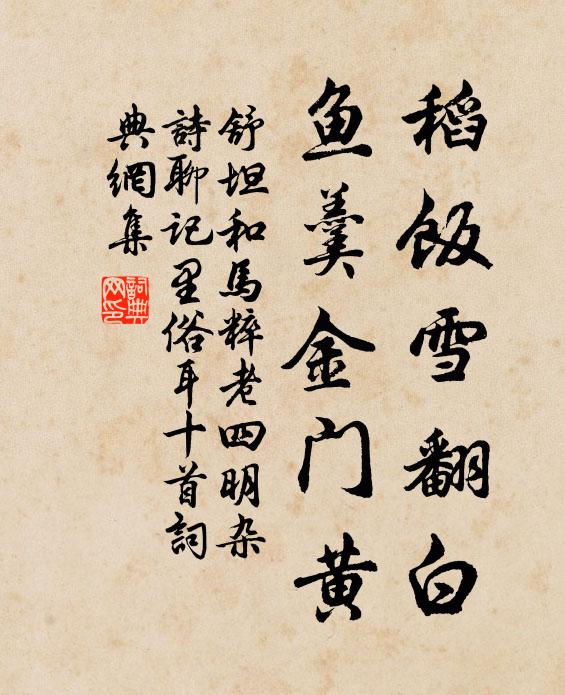 稻飯雪翻白
鱼羹金门黄
舒坦和馬粹老四明杂
詩聊記里俗耳十首詞
典網集
詞典
网印